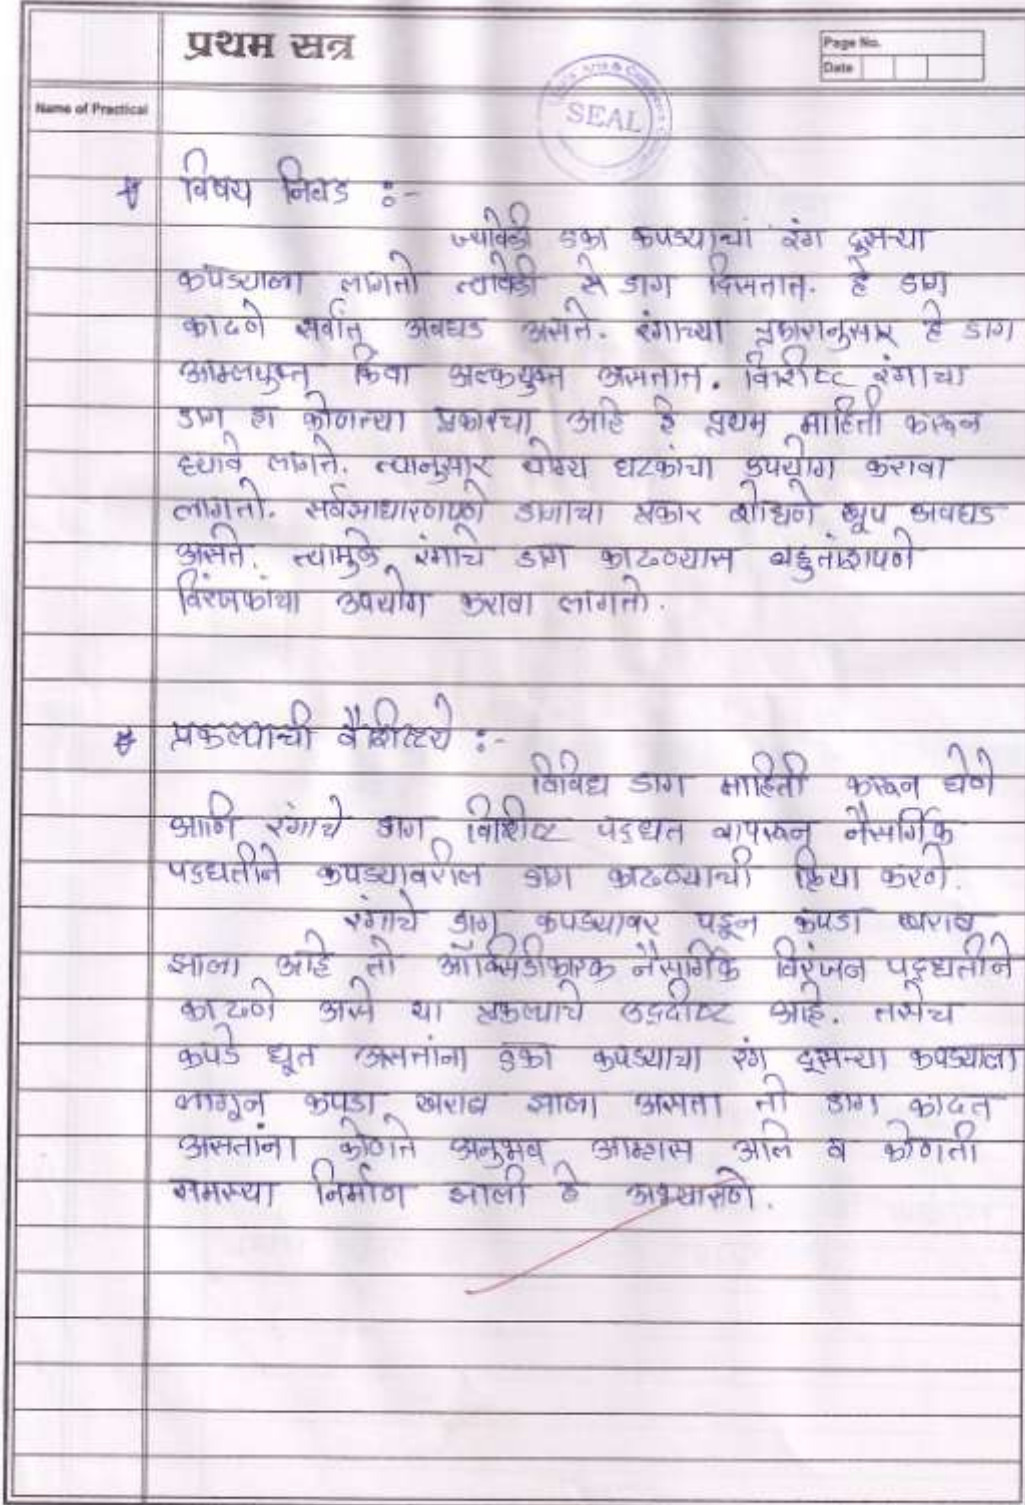 प्रथम सत्र
Page No.
Date
SEAL
Name of Practical
* विषय निवड :-
ज्यावेळी एका कपड्याचा रंग दुसऱ्या
कपड्याला लागतो त्यावेळी से डाग दिसतात. हे डाग
काढणे सर्वात अवघड असते. रंगाच्या प्रकारानुसार हे डाग
आम्लयुक्त किंवा अल्कयुक्त असतात. विशिष्ट रंगाचा
डाग हा कोणत्या प्रकारचा आहे हे प्रथम माहिती करून
घ्यावे लागते. त्यानुसार योग्य घटकांचा उपयोग करावा
लागतो. सर्वसाधारणपणे डागाचा प्रकार शोधणे खूप अवघड
असते. त्यामुळे रंगाचे डाग काढण्यास बहुतांशपणे
विरंजकांचा उपयोग करावा लागतो.
* प्रकल्पाची वैशिष्टये :-
विविध डाग माहिती करून घेणे
आणि रंगाचे डाग विशिष्ट पद्धत वापरून नैसर्गिक
पद्धतीने कपड्यावरील डाग काढण्याची क्रिया करणे.
रंगाचे डाग कपड्यावर पडून कपडा खराब
झाला आहे तो ऑक्सिडीकारक नैसर्गिक विरंजन पद्धतीने
काढणे असे या प्रकल्पाचे उद्दीष्ट आहे. तसेच
कपडे धूत असतांना एका कपड्याचा रंग दुसऱ्या कपड्याला
लागून कपडा खराब झाला असता तो डाग काढत
असतांना कोणते अनुभव आम्हास आले व कोणती
समस्या निर्माण झाली हे अभ्यासणे.